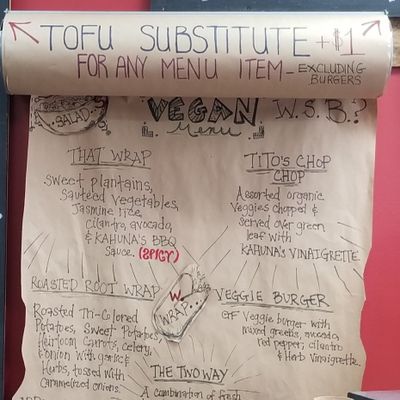 TOFU SUBSTITUTE +$1
FOR ANY MENU ITEM - EXCLUDING
BURGERS
SALAD
VEGAN W.S.B.?
Menu
THAT WRAP
Sweet plantains,
Sauteed vegetables,
Jasmine rice
cilantro, avocado,
& KAHUNA'S BBQ
Sauce. (SPICY)
TITO'S CHOP
CHOP
Assorted organic
Veggies chopped &
served over green
leaf with
KAHUNA'S VINAIGRETTE.
ROASTED ROOT WRAP
Roasted Tri-Colored
Potatoes, Sweet Potatoes,
Heirloom Carrots, celery,
& onion with garlic &
Herbs, tossed with
Caramelized onions.
W
WRAP...
VEGGIE BURGER
GF Veggie burger with
mixed greens, avocado,
red pepper, cilantro
& Herb Vinaigrette.
THE TWO WAY
A combination of fresh